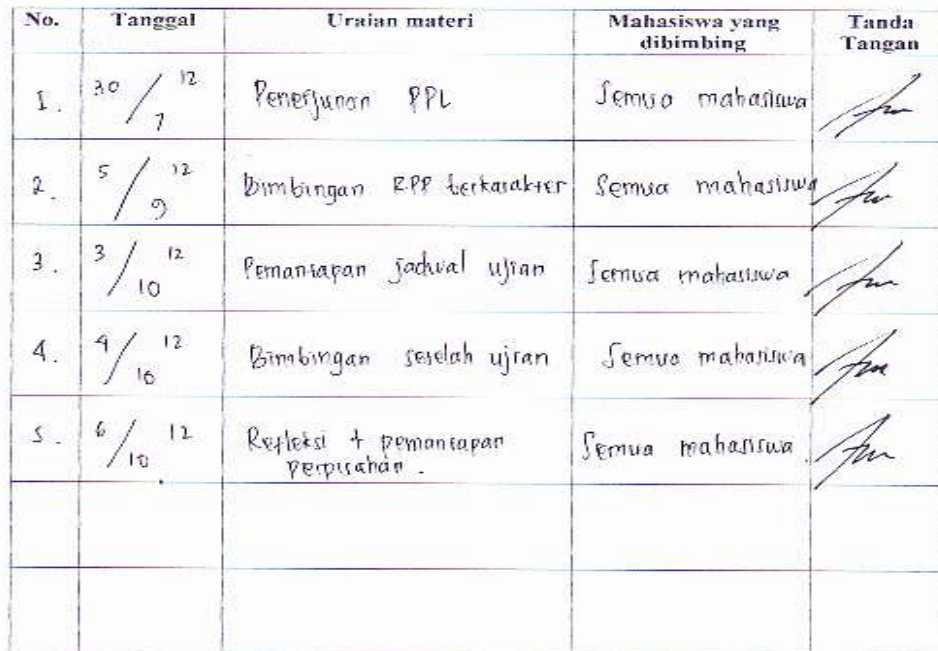 No. Tanggal Uraian materi Mahasiswa yang dibimbing Tanda Tangan
1. 30/7 12 Penerjunan PPL Semua mahasiswa
2. 5/9 12 Bimbingan RPP berkarakter Semua mahasiswa
3. 3/10 12 Pemantapan jadwal ujian Semua mahasiswa
4. 4/10 12 Bimbingan setelah ujian Semua mahasiswa
5. 6/10 12 Refleksi + pemantapan perpisahan. Semua mahasiswa.